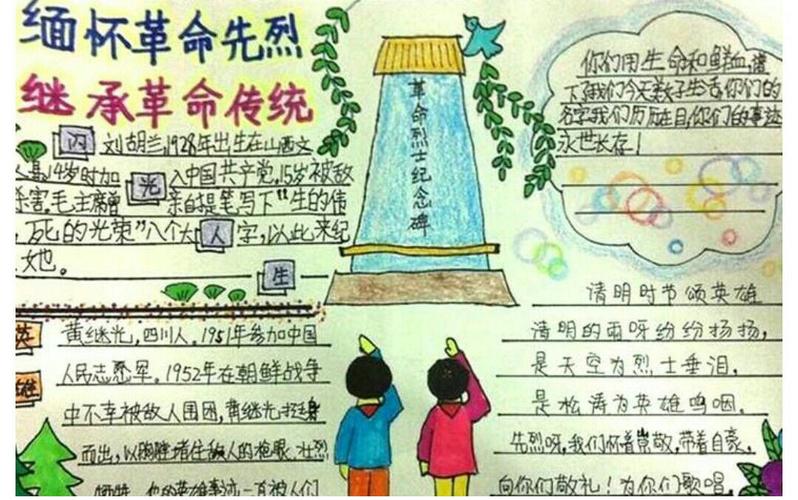 缅怀革命先烈
继承革命传统
闪
光
人
生
刘胡兰,1928年出生在山西文
县,14岁时加入中国共产党,15岁被敌
杀害,毛主席曾亲自提笔写下“生的伟
死的光荣”八个大字,以此来纪
她。
英
雄
黄继光,四川人。1951年参加中国
人民志愿军。1952年在朝鲜战争
中不幸被敌人围困,黄继光挺身
而出,以胸膛堵住敌人的枪眼,壮烈
牺牲,他的英雄事迹一直被人们
革命烈士纪念碑
你们用生命和鲜血,谱
下了我们今天美好生活,你们的
名字我们历历在目,你们的事迹
永世长存!
清明时节颂英雄
清明的雨呀纷纷扬扬,
是天空为烈士垂泪,
是松涛为英雄呜咽。
先烈呀,我们怀着崇敬,带着自豪,
向你们敬礼!为你们歌唱,